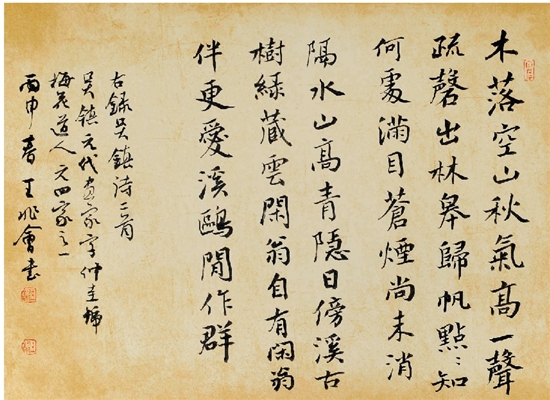 木落空山秋氣高一聲
疏磬出林皋歸帆點〻知
何處滿目蒼煙尚未消
隔水山高青隱日傍溪古
樹綠藏雲閑翁自有閑翁
伴更愛溪鷗閒作群
右録吴镇诗二首
吴镇元代画家字仲圭號
梅花道人元四家之一
丙申春王兆會书